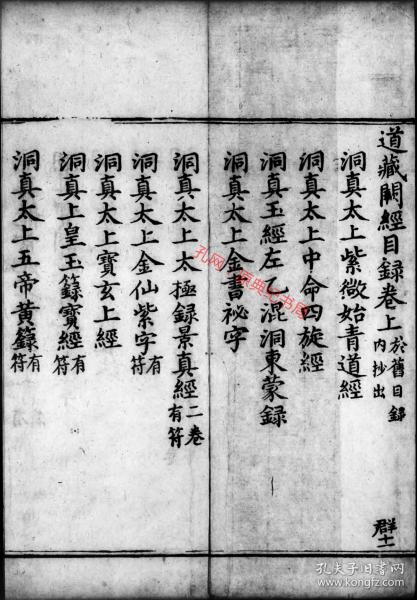 道藏闕經目錄卷上 於舊目錄內抄出
洞真太上紫微始青道經
洞真太上中命四旋經
洞真玉經左乙混洞東蒙録
洞真太上金書祕字
洞真太上太極録景真經 二卷有符
洞真太上金仙紫字 有符
洞真太上寶玄上經
洞真上皇玉籙寶經 有符
洞真太上五帝黃籙 有符
群十一
孔夫子旧书网
www.kongfz.com